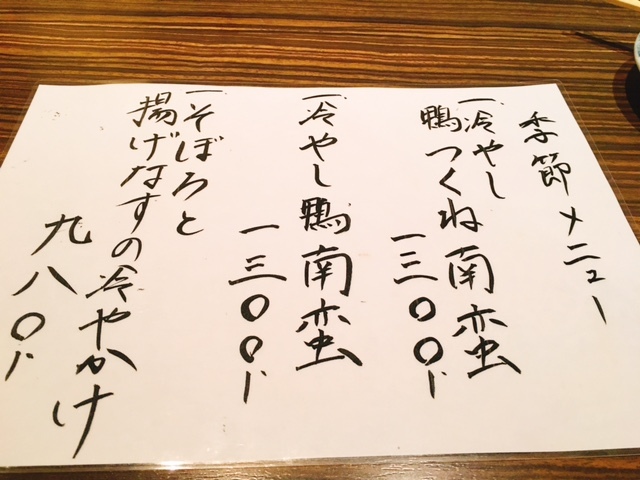 季節メニュー
一冷やし
鴨つくね南蛮
一三〇〇、
一冷やし鴨南蛮
一三〇〇、
一そぼろと
揚げなすの冷やかけ
九八〇、